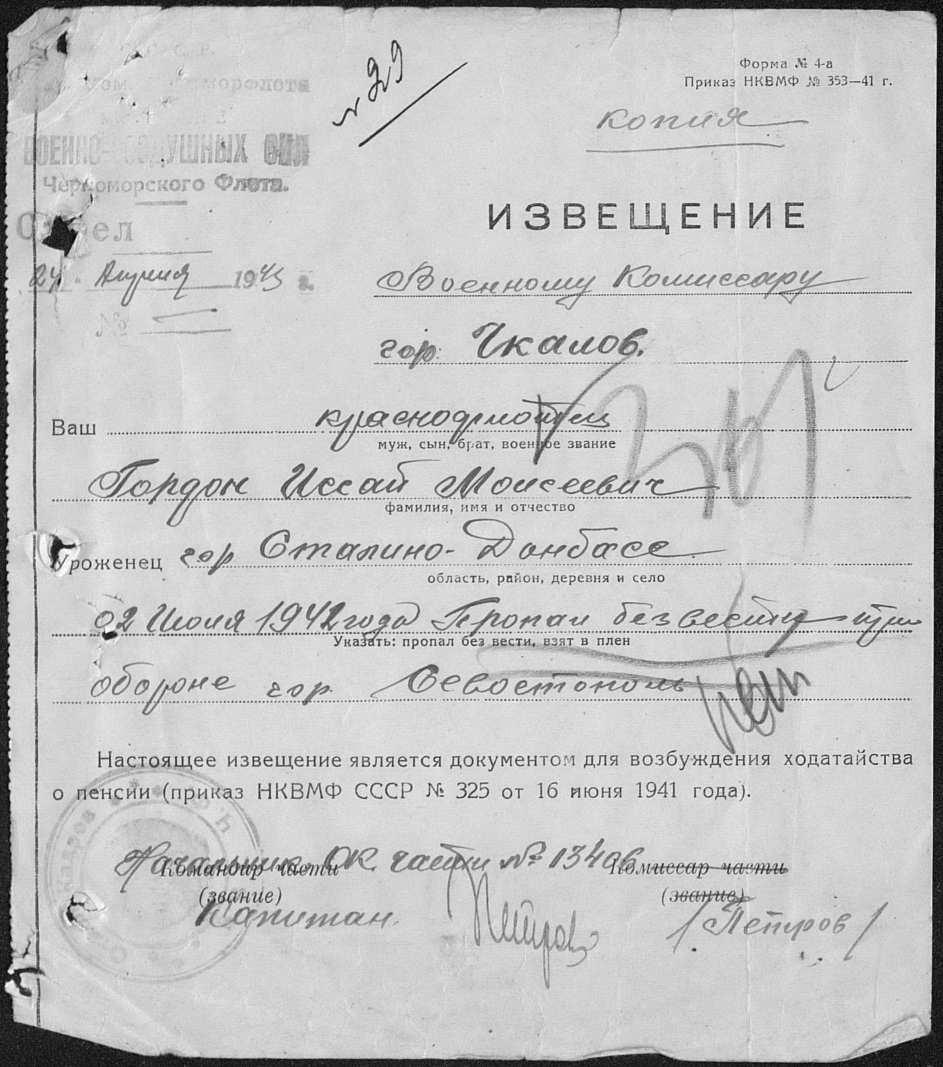 № 29
Форма № 4-а
Приказ НКВМФ № 353—41 г.
копия
ВОЕННО-ВОЗДУШНЫХ СИЛ
Черноморского Флота.
ИЗВЕЩЕНИЕ
24 Апреля 1943 г.
№
Военному Комиссару
гор. Чкалов.
Ваш краснофлотец
муж, сын, брат, военное звание
Гордон Иссай Моисеевич
фамилия, имя и отчество
Уроженец гор Сталино-Донбасс
область, район, деревня и село
02 Июля 1942 года Пропал без вести при
Указать: пропал без вести, взят в плен
обороне гор. Севостополь
Настоящее извещение является документом для возбуждения ходатайства
о пенсии (приказ НКВМФ СССР № 325 от 16 июня 1941 года).
Начальник ОК части № 1340
Командир части Комиссар части
(звание) (звание)
Капитан Петров /Петров/